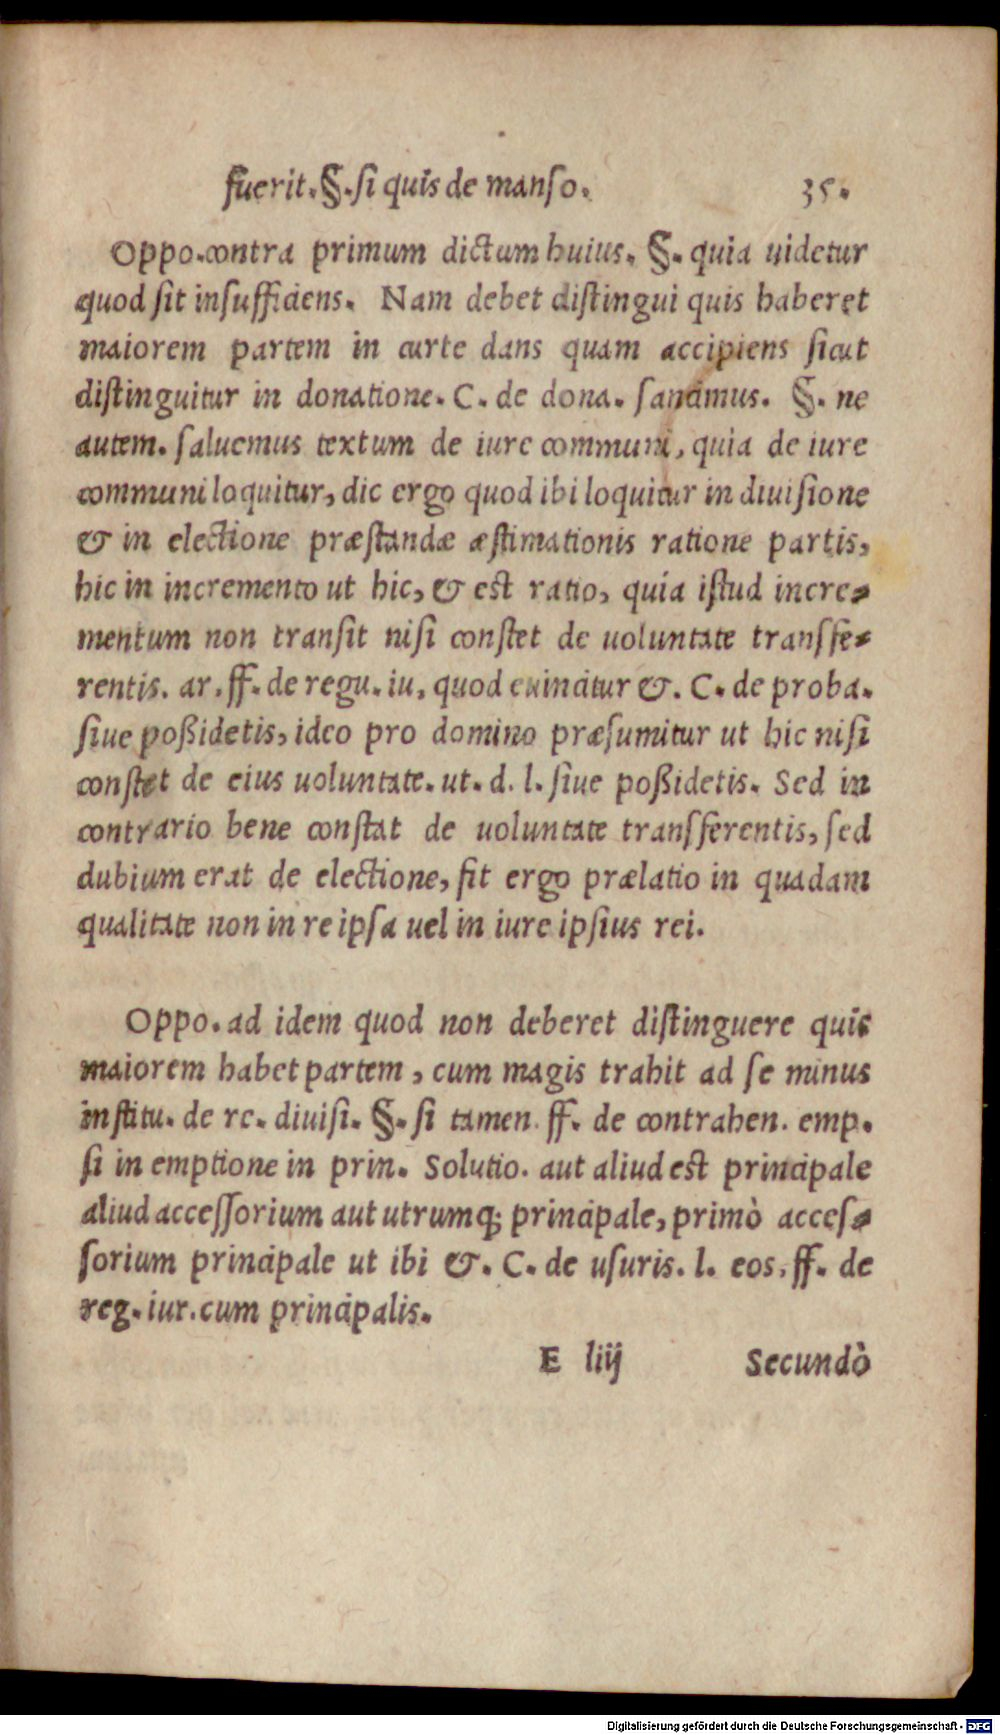 fuerit.§.ſi quis de manſo. 35.
Oppo.contra primum dictum huius. §. quia uidetur
quod ſit inſufficiens. Nam debet diſtingui quis haberet
maiorem partem in curte dans quam accipiens ſicut
diſtinguitur in donatione. C. de dona. ſancimus. §. ne
autem. ſaluemus textum de iure communi, quia de iure
communi loquitur, dic ergo quod ibi loquitur in diuiſione
& in electione præſtandæ æſtimationis ratione partis,
hic in incremento ut hic, & est ratio, quia iſtud incre-
mentum non tranſit niſi conſtet de uoluntate tranſfe-
rentis. ar. ff. de regu. iu. quod euincitur &. C. de proba.
ſiue poßidetis, ideo pro domino præſumitur ut hic niſi
conſtet de eius uoluntate. ut. d. l. ſiue poßidetis. Sed in
contrario bene conſtat de uoluntate tranſferentis, ſed
dubium erat de electione, fit ergo prælatio in quadam
qualitate non in re ipſa uel in iure ipſius rei.
Oppo. ad idem quod non deberet diſtinguere quis
maiorem habet partem, cum magis trahit ad ſe minus
inſtitu. de re. diuiſi. §. ſi tamen. ff. de contrahen. emp.
ſi in emptione in prin. Solutio. aut aliud est principale
aliud acceſſorium aut utrumq; principale, primò acceſ-
ſorium principale ut ibi &. C. de uſuris. l. eos. ff. de
reg. iur. cum principalis.
E iiij Secundò
Digitalisierung gefördert durch die Deutsche Forschungsgemeinschaft - DFG